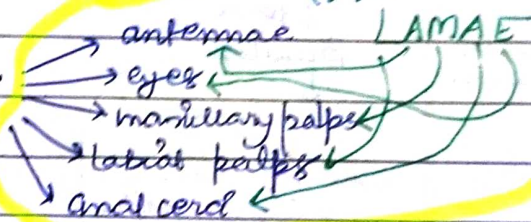 antennae LAMAE
eyes
maxillary palps
labial palps
anal cerci